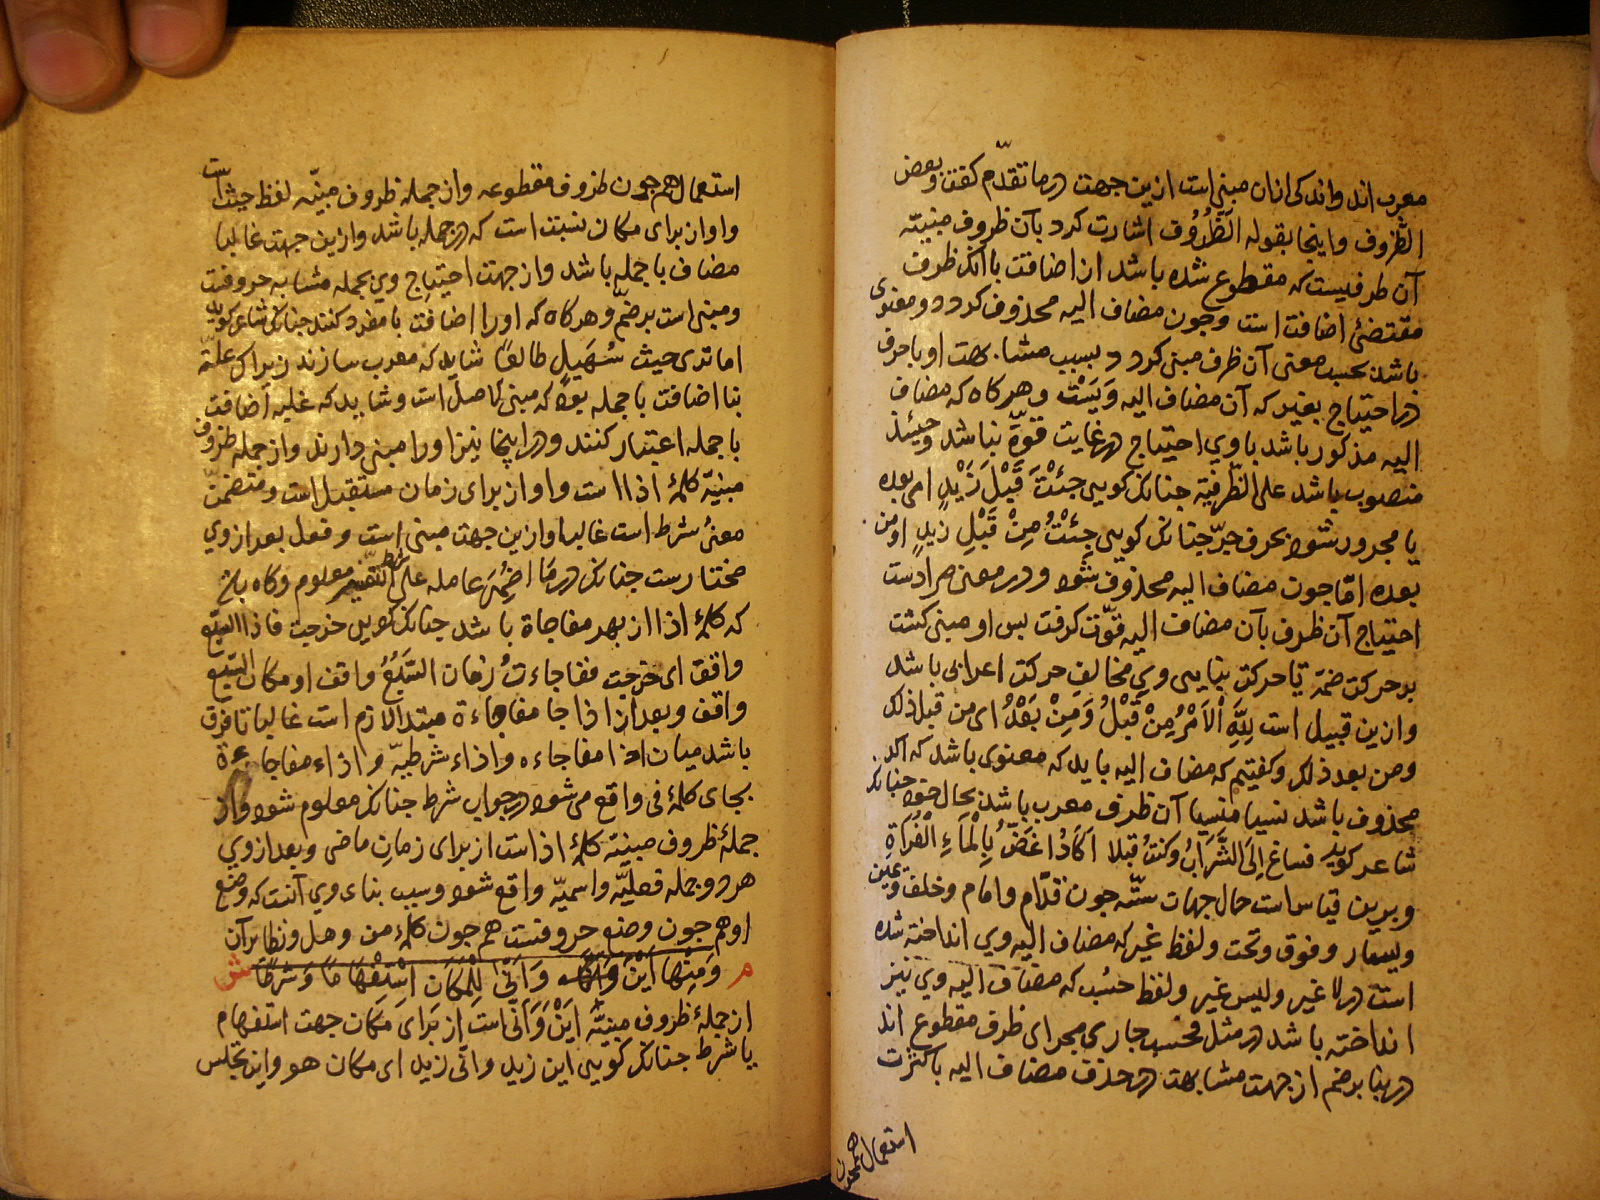 معرب اند واند کی ازان مبنی است ازین جهت در ما تقدّم کفت وبعض
الظروف واینجا بقوله الَظُرُوُف اشارت کرد بآن ظروف مبنیّه
آن طرفیست که مقطوع شده باشد از اضافت باآنکه ظرف
مقتضئ اضافت است وجون مضاف الیه محذوف کردد ومعنوی
باشد بحسب معنی آن ظرف مبنی کردد بسبب مشابهت او باحرف
در احتیاج بغیر که آن مضاف الیه وَیَسْت وهرکاه که مضاف
الیه مذکور باشد باوی احتیاج در غایت قوّة بنا شد وحینئذ
منصوب باشد علی الظّرفیّة جنانکه کویی جئْتَ قَبْلَ زَیْدٍ امی بعده
یا مجرور شود بحرف جرّ جنانکه کویی جئْتُ مِنْ قَبْلِ زیدٍ او من
بعده امّا جون مضاف الیه محذوف شود ودر معنی مرادست
احتیاج آن ظرف بآن مضاف الیه قوّت کرفت بس او مبنی کشت
بر حرکت ضمّه تا حرکت بنایی وی مخالف حرکت اعرابی باشد
وازین قبیل است لِلَّهِ اْلاَمْرُ مِنْ قَبْلُ وَمِنْ بَعْدُ ای من قبل ذلک
ومن بعد ذلک وکفتیم که مضاف الیه باید که معنوی باشد که اکر
محذوف باشد نسیا منسیا آن ظرف معرب باشد بحال خود جنانکه
شاعر کوید فساغ اِلَی الشَّرَابُ وکنتُ قبلا اَکَادُ اغَصُّ بِالْمَاءِ الْفُرَاةِ
وبرین قیاس است حال جهات ستّه جون قدّام وامام وخلف ویمین
ویسار وفوق وتحت ولفظ غیر که مضاف الیه وی انداخته شده
است در لا غیر ولیس غیر ولفظ حسْب که مضاف الیه وی نیز
انداخته باشد در مثل فحسب جاری مجرای ظرف مقطوع اند
در بنا بر ضم از جهت مشابهت در حذف مضاف الیه با کثرت
استعمال همجون
استعمال همجون ظروف مقطوعه واز جمله ظروف مبنیّه لفظ حیث است
واو از برای مکان نسبت است که در جمله باشد وازین جهت غالبا
مضاف باجمله باشد واز جهت احتیاج وی بجمله مشابه حروفست
ومبنی است بر ضمّ وهرکاه که اورا اضافت بامفرد کنند جنانکه شاعر کوید
اما تری حیث سُهَیلٍ طالعًا شاید که معرب سازند زیراکه علّة
بنا اضافت باجمله بود که مبنی لاصل است وشاید که غلبه اضافت
باجمله اعتبار کنند ودر اینجا نیز اورا مبنی دارند واز جمله ظروف
مبنیّه کلمۀ اذا است واو از برای زمان مستقبل است ومتضمن
معنئ شرط است غالبا وازین جهت مبنی است وفعل بعد ازوی
مختارست جنانکه در مَا اضْمِرَ عامله علی شرط التفسیر معلوم وکاه باشد
که کلمۀ اذا از بهر مفاجاة باشد جنانکه کویی خرجت فاذا السّبُع
واقف ای خرجت ففاجاءتُ زمان السَّبُعُ واقف او مکان السّبع
واقف وبعد از اذا جا مفاجاءة مبتدا لازم است غالبا تا فرق
باشد میان اذا مفاجاءه واذاء شرطیّه واذاء مفاجاءة
بجای کلمۀ فی واقع می شود در جواب شرط جنانکه معلوم شود واز
جملۀ ظروف مبنیّه کلمۀ اذ است از برای زمانِ ماضی وبعد ازوی
هر دو جمله فعلیّه واسمیّه واقع شود وسبب بناء وی آنست که وضع
او همجون وضع حروفست همجون کلمۀ من وهل ونظایر آن
م وَمِنْهَا اَیْنَ وَاَنّٰی لِلْمَکَان اسْتِفْهَامًا وَشَرْطًا ش
از جملۀ ظروف مبنیّه اَیْنَ وَاَنّٰی است از بَرایَ مَکان جهت استفهام
یا شرط جنانکه کویی این زید وانّی زید ای مکان هو واین تجلس